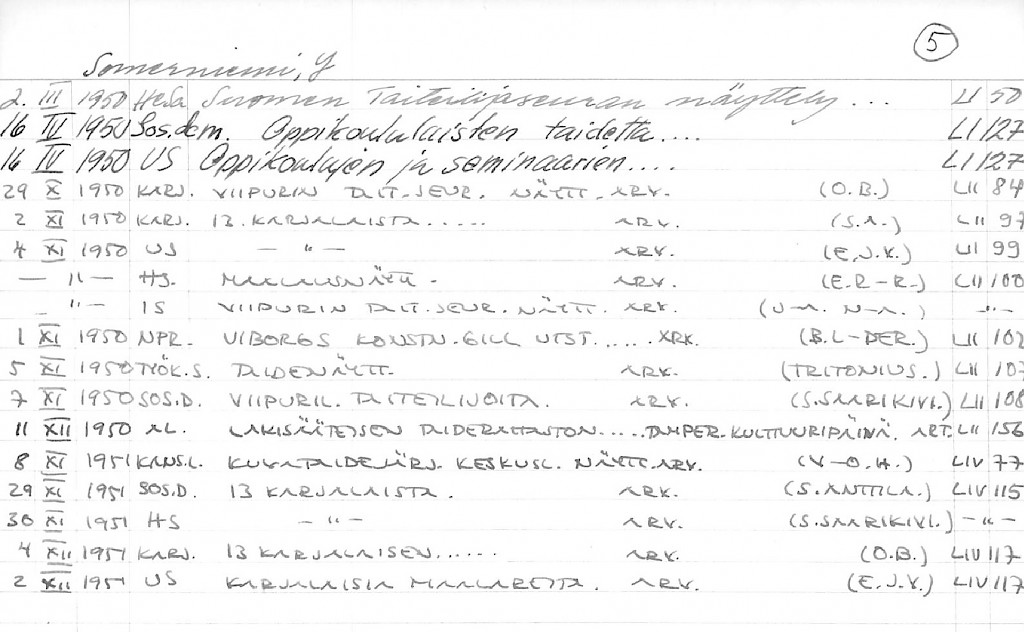 5
Somerniemi, Y
2. III 1950 HeSa Suomen Taiteilijaseuran näyttely ... LI 50
16 IV 1950 Sos.dem. Oppikoululaisten taidetta .... LI 127
16 IV 1950 US Oppikoulujen ja seminaarien .... LI 127
29 X 1950 KARJ. VIIPURIN TAIT.SEUR. NÄYTT. ARV. (O.B.) LII 84
2 XI 1950 KARJ. 13 KARJALAISTA ...... ARV. (S.A.) LII 97
4 XI 1950 US — " — ARV. (E.J.V.) LII 99
— " — HS. MAALAUSNÄYTT. ARV. (E.R-R.) LII 100
— " — IS VIIPURIN TAIT.SEUR. NÄYTT. ARV. (U-A. N-A.) — " —
1 XI 1950 NPR. VIBORGS KONSTN.GILL UTST. ..... ARV. (B.L-DER.) LII 102
5 XI 1950 TYÖK.S. TAIDENÄYTT. ARV. (TRITONIUS.) LII 107
7 XI 1950 SOS.D. VIIPURIL. TAITEILIJOITA. ARV. (S.SAARIKIVI.) LII 108
11 XII 1950 AL. LAKISÄÄTEISEN TAIDERAHASTON ..... TAMPER. KULTTUURIPÄIVÄ. ART. LII 156
8 XI 1951 KANS.L. KUVATAIDEJÄRJ. KESKUSL. NÄYTT. ARV. (V-O.H.) LIV 77
29 XI 1951 SOS.D. 13 KARJALAISTA. ARV. (S.ANTTILA.) LIV 115
30 XI 1951 HS — " — ARV. (S.SAARIKIVI.) — " —
4 XII 1951 KARJ. 13 KARJALAISEN ...... ARV. (O.B.) LIV 117
2 XII 1951 US KARJALAISIA MAALAREITA. ARV. (E.J.V.) LIV 117